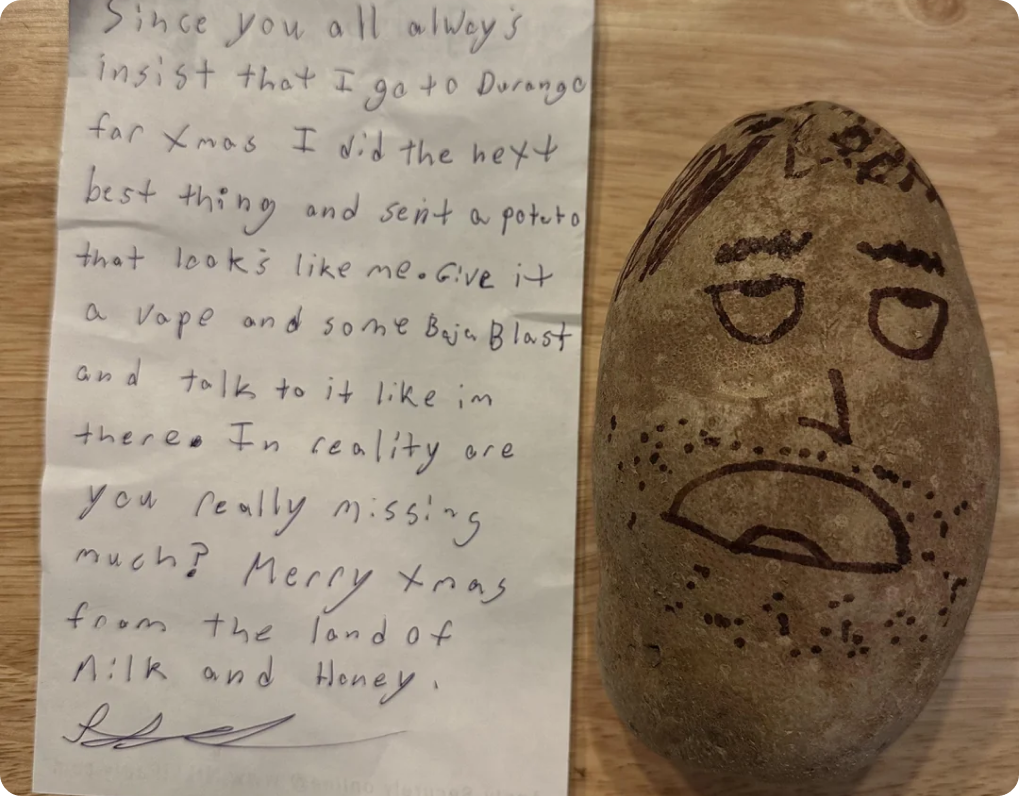 Since you all alway's
insist that I go to Durango
for Xmas I did the next
best thing and sent a potato
that look's like me. Give it
a vape and some Baja Blast
and talk to it like im
there. In reality are
you really missing
much? Merry Xmas
from the land of
Milk and Honey.